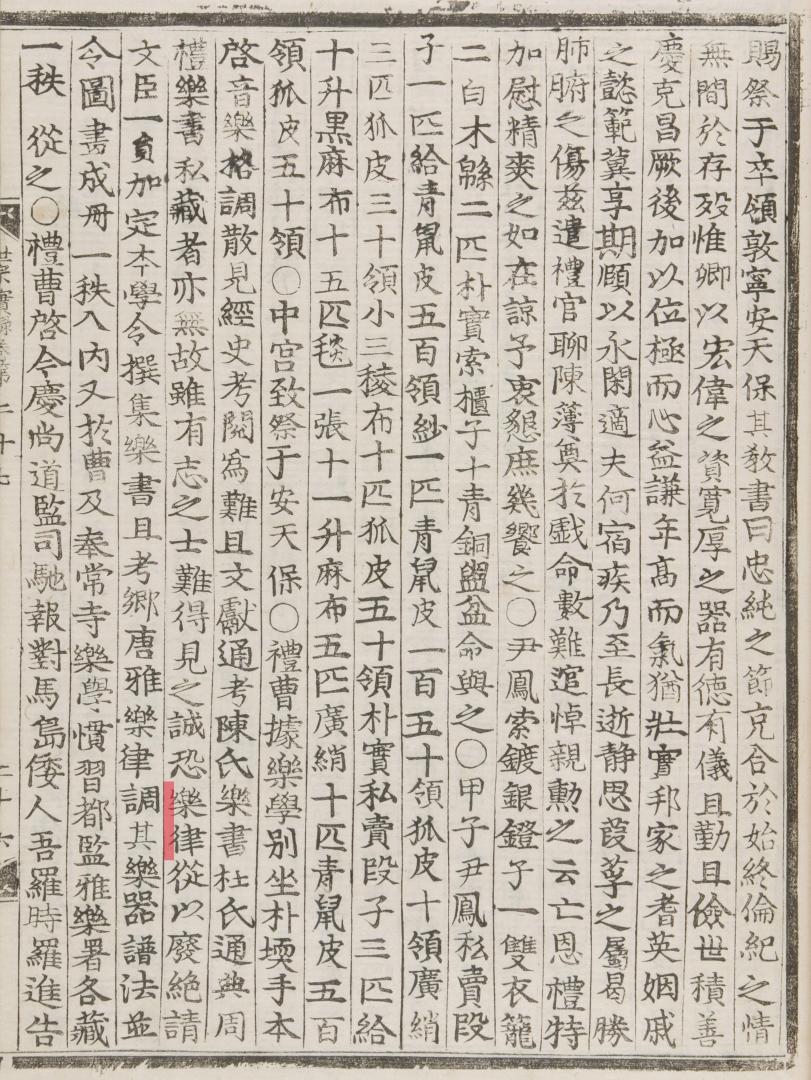 賜祭于卒領敦寧安天保其敎書曰忠純之節克合於始終倫紀之情
無間於存歿惟卿以宏偉之資寬厚之器有德有儀且勤且儉世積善
慶克昌厥後加以位極而心益謙年高而氣猶壯實邦家之耆英姻戚
之懿範冀享期頤以永閑適夫何宿疾乃至長逝靜思葭莩之屬曷勝
肺腑之傷玆遣禮官聊陳薄奠於戲命數難逭悼親勳之云亡恩禮特
加慰精爽之如在諒予衷懇庶幾饗之〇尹鳳索鍍銀鐙子一雙衣籠
二白木緜二匹朴實索櫃子十靑銅盥盆命與之〇甲子尹鳳私賣段
子一匹給靑鼠皮五百領紗一匹靑鼠皮一百五十領狐皮十領廣綃
三匹狐皮三十領小三稜布十匹狐皮五十領朴實私賣段子三匹給
十升黑麻布十五匹毯一張十一升麻布五匹廣綃十匹靑鼠皮五百
領狐皮五十領〇中宮致祭于安天保〇禮曹據樂學別坐朴堧手本
啓音樂格調散見經史考閱爲難且文獻通考陳氏樂書杜氏通典周
禮樂書私藏者亦無故雖有志之士難得見之誠恐樂律從以廢絶請
文臣一員加定本學令撰集樂書且考鄕唐雅樂律調其樂器譜法並
令圖畫成冊一秩入內又於曹及奉常寺樂學慣習都監雅樂署各藏
一秩從之〇禮曹啓今慶尙道監司馳報對馬島倭人吾羅時羅進告
世宗實錄卷第二十七
二十六